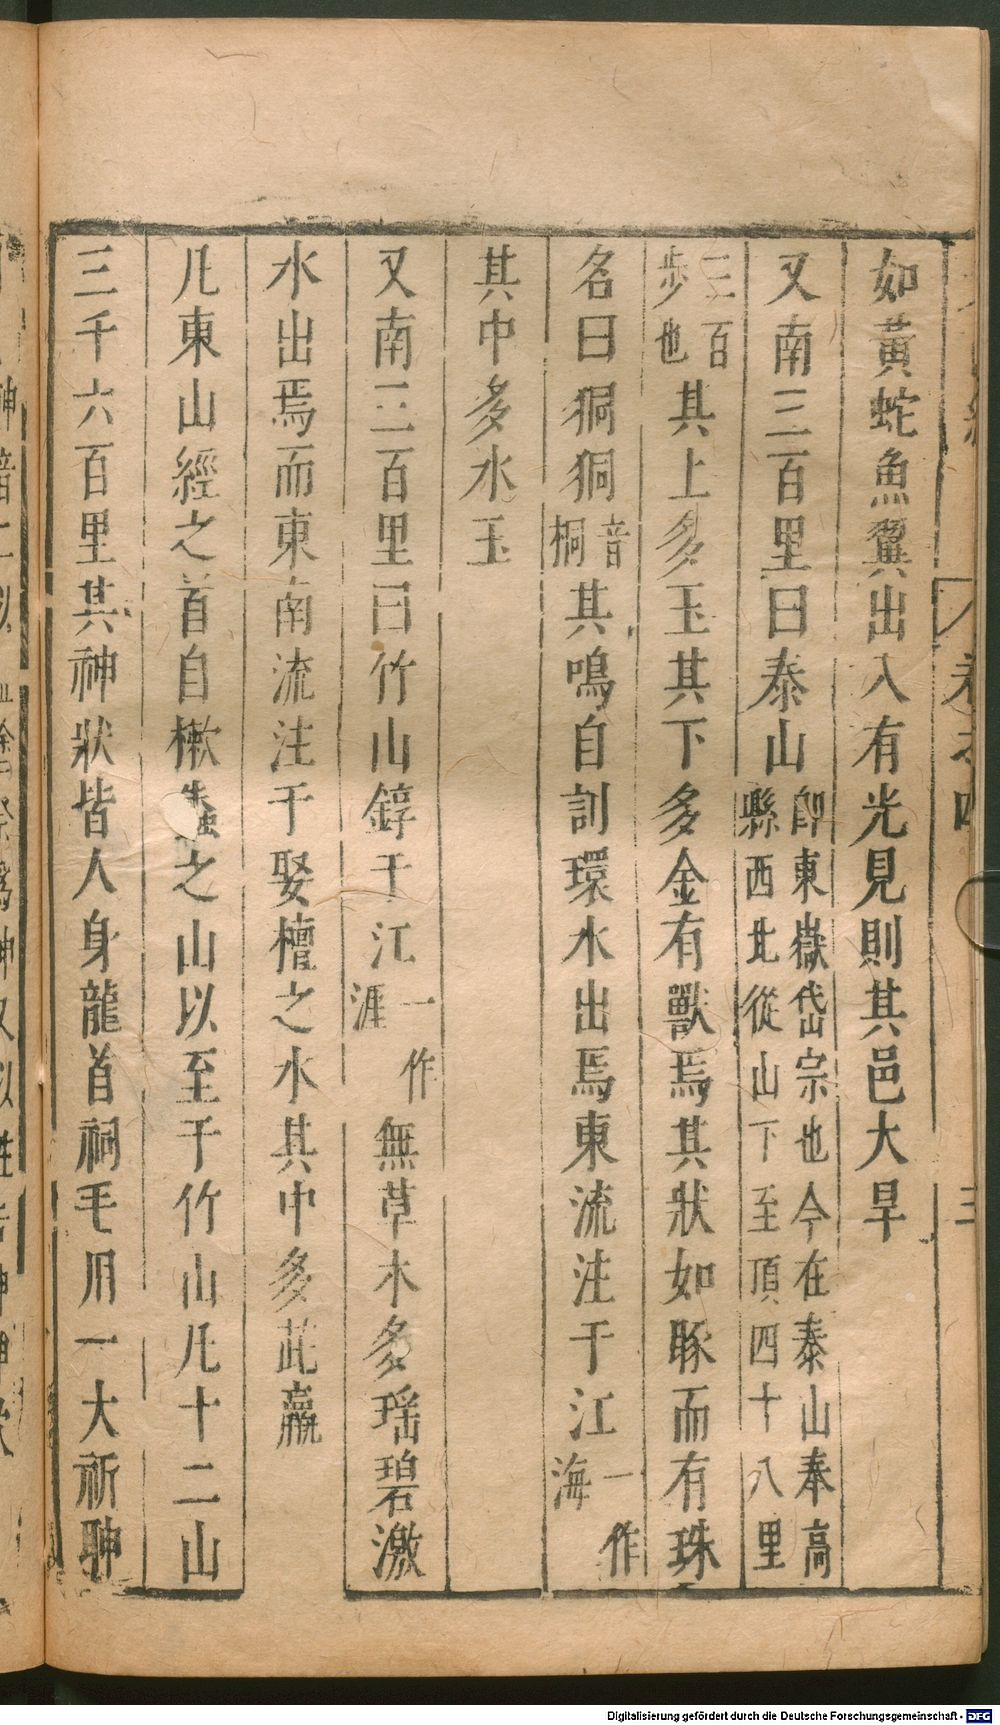 卷之四 三
如黃蛇魚翼出入有光見則其邑大旱
又南三百里曰泰山卽東嶽岱宗也今在泰山奉高
縣西北從山下至頂四十八里
三百
步也其上多玉其下多金有獸焉其狀如豚而有珠
名曰狪狪音桐其鳴自訆環水出焉東流注于江一作海
其中多水玉
又南三百里曰竹山錞于江一作涯無草木多瑤碧激
水出焉而東南流注于娶檀之水其中多茈蠃
凡東山經之首自樕之山以至于竹山凡十二山
三千六百里其神狀皆人身龍首祠毛用一大祈
Digitalisierung gefördert durch die Deutsche Forschungsgemeinschaft - DFG